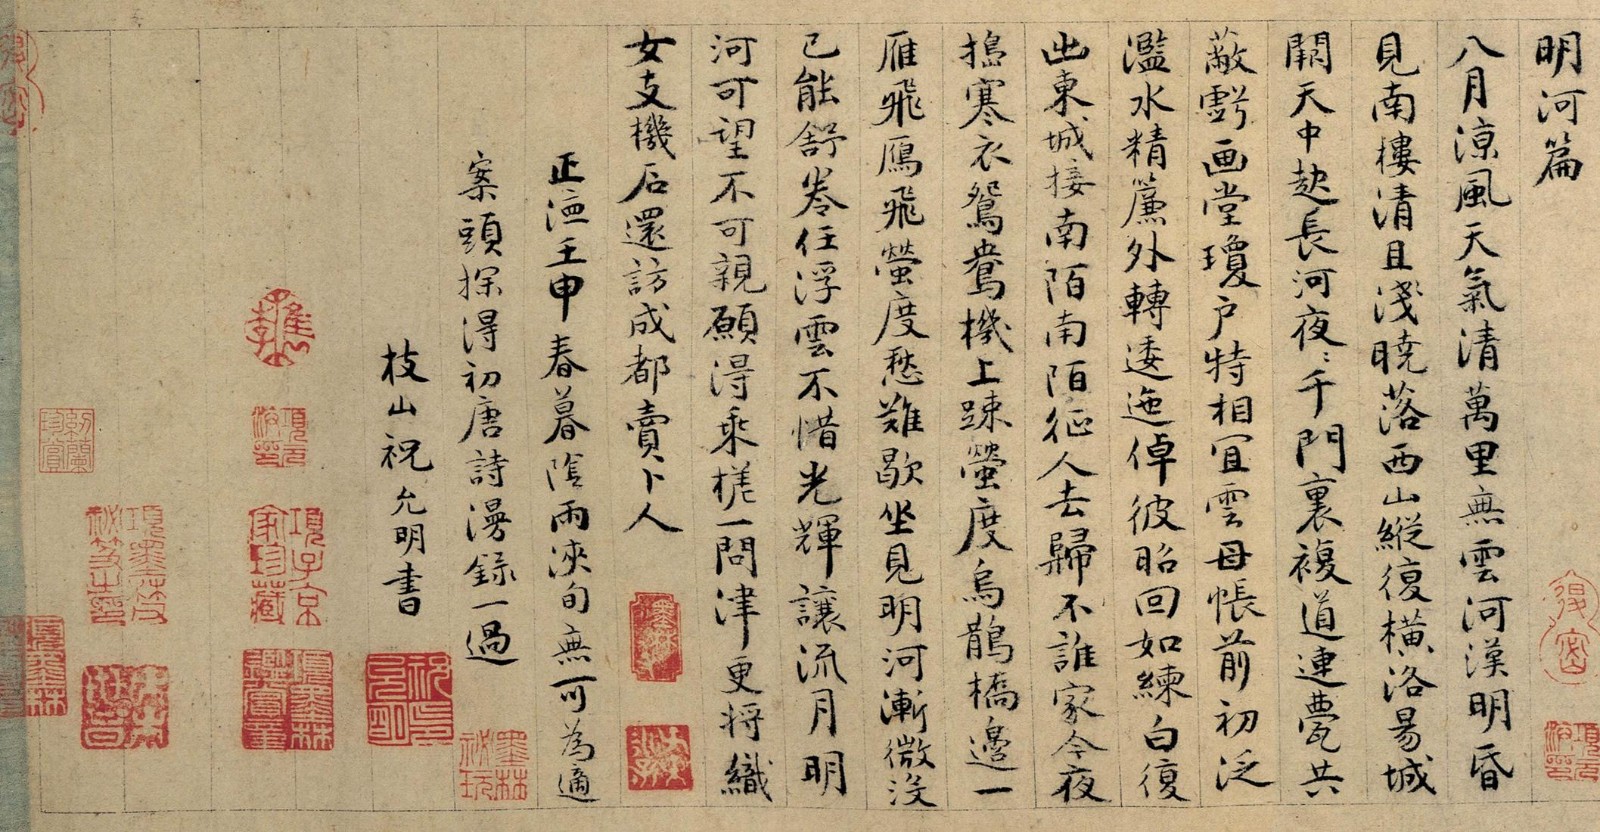 明河篇
八月涼風天氣清萬里無雲河漢明昏
見南樓清且淺曉落西山縱復橫洛昜城
闕天中起長河夜〻千門裏複道連甍共
蔽虧画堂瓊户特相宜雲母帳前初泛
濫水精簾外轉逶迤倬彼昭回如練白復
出東城接南陌南陌征人去歸不誰家今夜
擣寒衣鴛鴦機上踈螢度烏鵲橋邊一
雁飛鴈飛螢度愁難歇坐見明河漸微沒
已能舒卷任浮雲不惜光輝讓流月明
河可望不可親願得乘槎一問津更將織
女支機石還訪成都賣卜人
正德壬申春暮陰雨浹旬無可為適
案頭探得初唐詩漫錄一過
枝山祝允明書
墨林祕玩
項子京家珍藏
項墨林鑑賞章